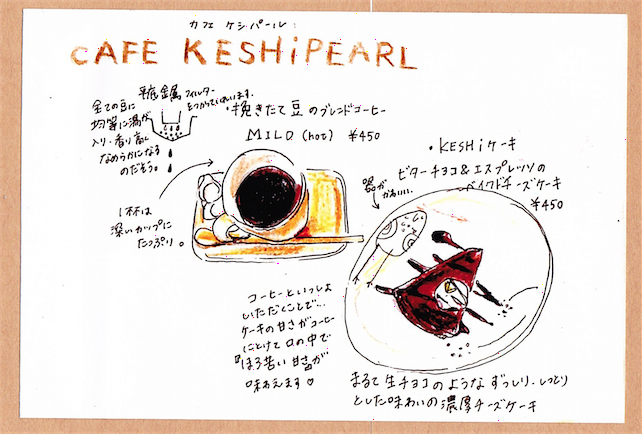 カフェ ケシパール:
CAFE KESHiPEARL
全ての豆に
均等に湯が
入り・香り高く
なめらかになる
のだそう。
フィルター
をつかっています.
・挽きたて豆のブレンドコーヒー
MILD (hot) ¥450
1杯は
深いカップに
たっぷり。
・KESHiケーキ
ビターチョコ&エスプレッソの
ベイクドチーズケーキ
¥450
器が
かわいい.
コーヒーといっしょ
にいただくことで…
ケーキの甘さがコーヒー
にとけて口の中で
『ほろ苦い甘さ』が
味わえます♡
まるで生チョコのようなずっしり、しっとり
とした味わいの濃厚チーズケーキ